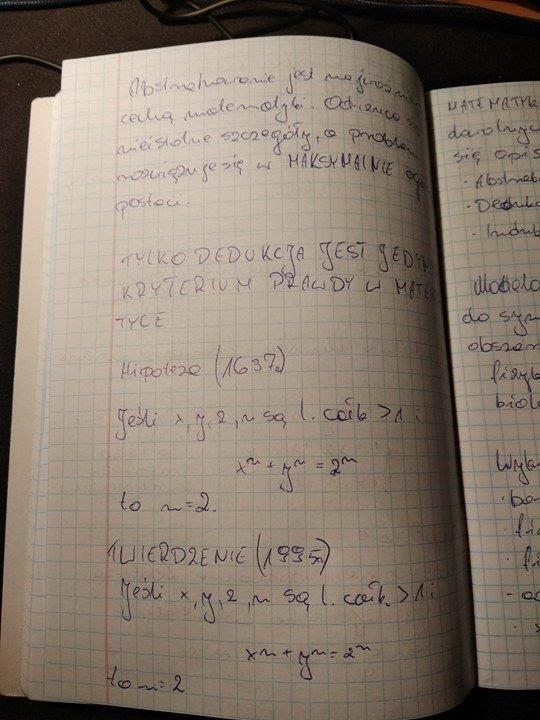 Abstrahowanie jest najważnie
cechą matematyki. Odrzuca się
nieistotne szczegóły, a problem
rozwiązuje się w MAKSYMALNIE ogó
postaci.
TYLKO DEDUKCJA JEST JEDYN
KRYTERIUM PRAWDY W MATE
TYCE
Hipoteza (1637)
Jeśli x, y, z, n są l. całk. > 1 i
xⁿ + yⁿ = zⁿ
to n = 2.
TWIERDZENIE (1995)
Jeśli x, y, z, n są l. całk. > 1 i
xⁿ + yⁿ = zⁿ
to n = 2
MATEMATYK
się opis
· Abstrak
· Deduk
· Induk
Modelo
do sym
obszar
fizyk
biolo